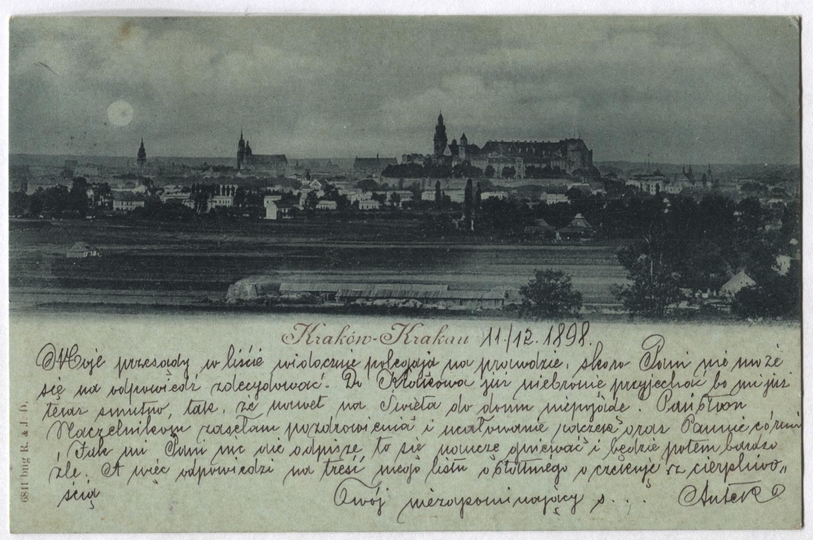 Kraków-Krakau 11/12. 1898.
Moje przesądy w liście widocznie polegają na prawdzie, skoro Pani nie może
się na odpowiedz zdecydować. Do już niebronie przyjechać bo mi już
teraz smutno, tak, że nawet na Święta do domu niepójdę. Państwu
Naczelnikom zasełam pozdrowienia i ucałowanie rączek oraz Pannie córuni
, Jak mi Pani nic nie odpisze, to się naucze gniewać i będzie potem bardzo
źle. A więc odpowiedzi na treść mego listu ostatniego oczekuje z cierpliwo„
ścią Twój niezapominający s . . . Antek
6811 Dmg R. & J. D.